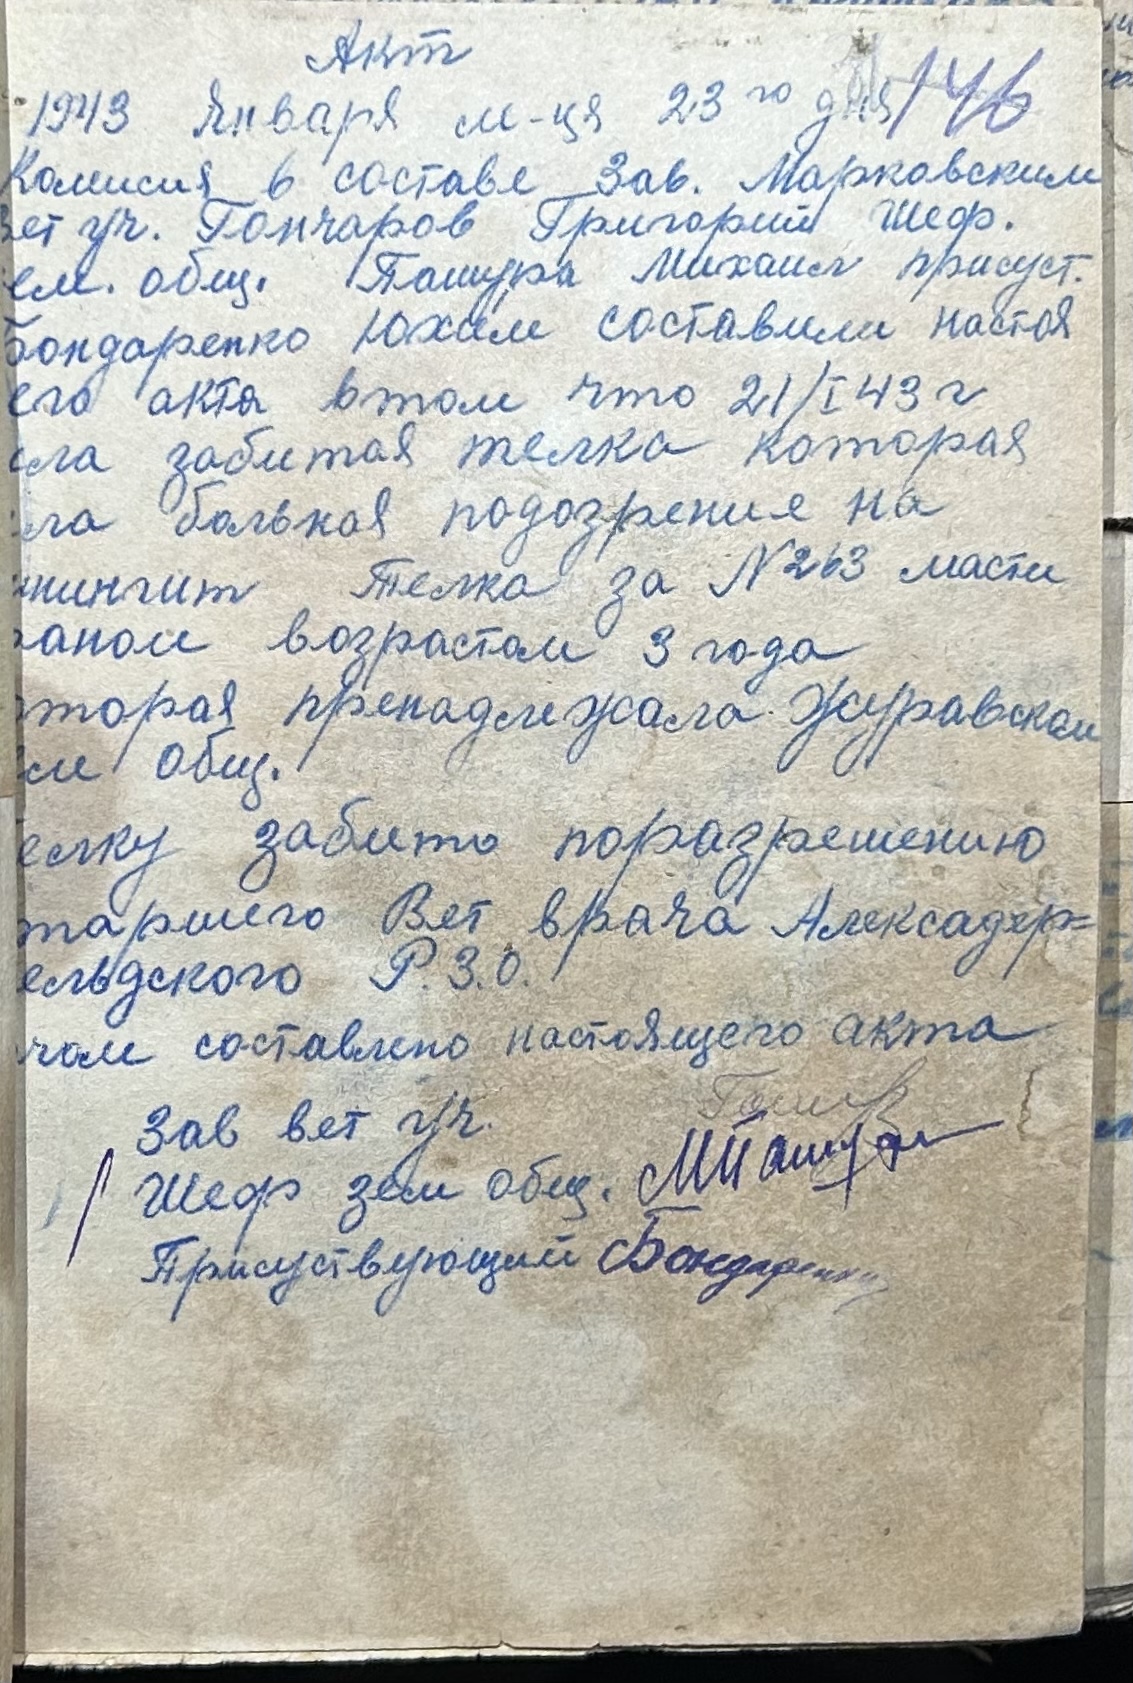 Акт
146
1943 Января м-ця 23го дня
Комисия в составе Зав. Марковским
Вет уч. Гончаров Григорий Шеф.
ем. общ. Пашура Михаил присуст.
Бондаренко Юхим составили настоя
его акта втом что 21/I 43 г
ла забитая телка которая
ла больная подозрение на
нингит Телка за N263 масти
раной возрастом 3 года
оторая пренадлежала Журавском
ем общ.
елку забито поразрешению
таршего Вет врача Алексадер=
ельдского Р.З.О.
чом составлено настоящего акта
Зав вет уч.
Шеф зем общ. МПашура
Присуствующий Бондаренко